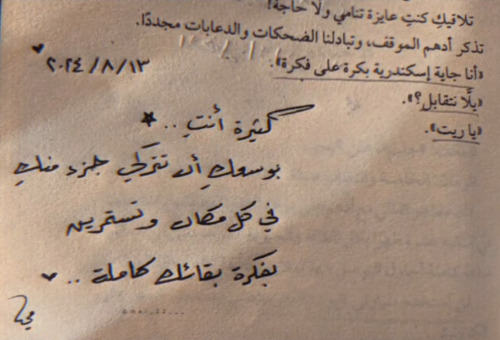 تلاقيكِ كنتِ عايزة تنامي ولا حاجة!
تذكر أدهم الموقف، وتبادلنا الضحكات والدعابات مجددًا.
«أنا جاية إسكندرية بكرة على فكرة».
«يلَّا نتقابل؟».
«يا ريت».
٢٠٢٤/٨/١٣
كثيرة أنتِ ..
بوسعكِ أن تتركي جزء منكِ
في كل مكان وتستمرين
بفكرة بقائك كاملة ..